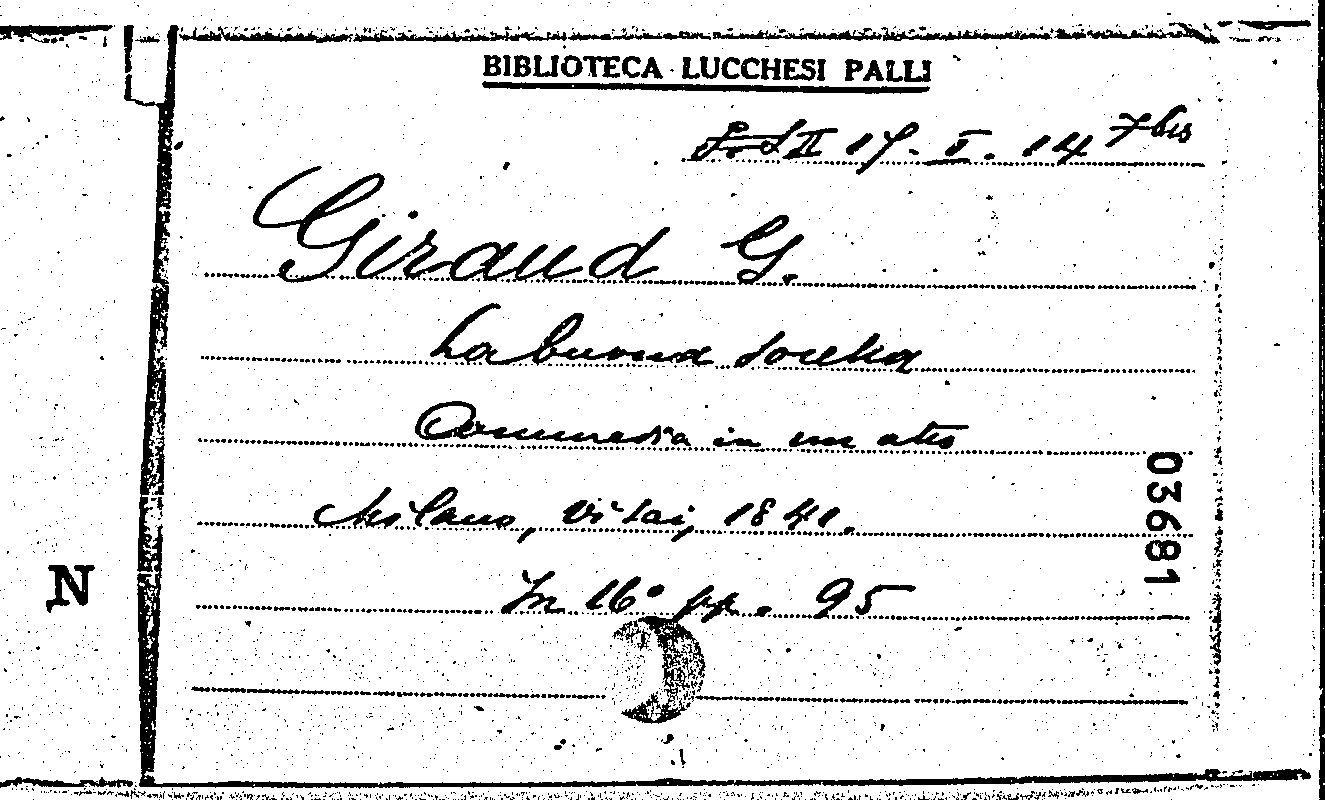 BIBLIOTECA LUCCHESI PALLI
II 17. I. 14 7 bis
Giraud G.
La buona
Commedia in un atto
Milano, Visai, 1841.
In 16° pp. 95
03681
N